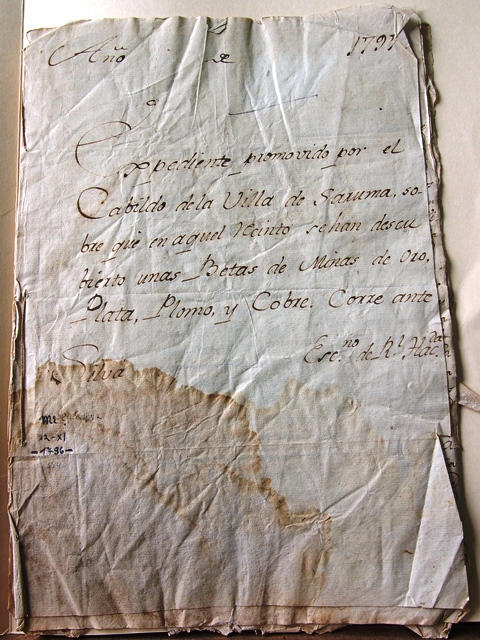 Año de 1791
Expediente promovido por el
Cabildo dela Villa de Saruma, so-
bre que en aquel Recinto sehan descu
bierto unas Betas de Minas de Oro,
Plata, Plomo, y Cobre. Corre ante
Esc.no de Rl. Hac.da
Silva
12-XI
-1786-